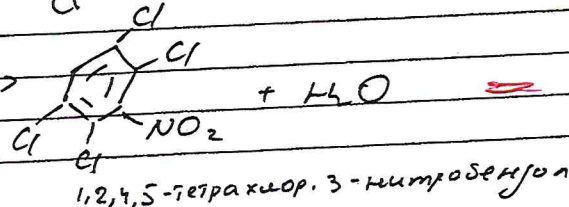 Cl
Cl
Cl
+ H₂O
Cl
NO₂
Cl
1,2,4,5-тетрахлор. 3-нитробензол